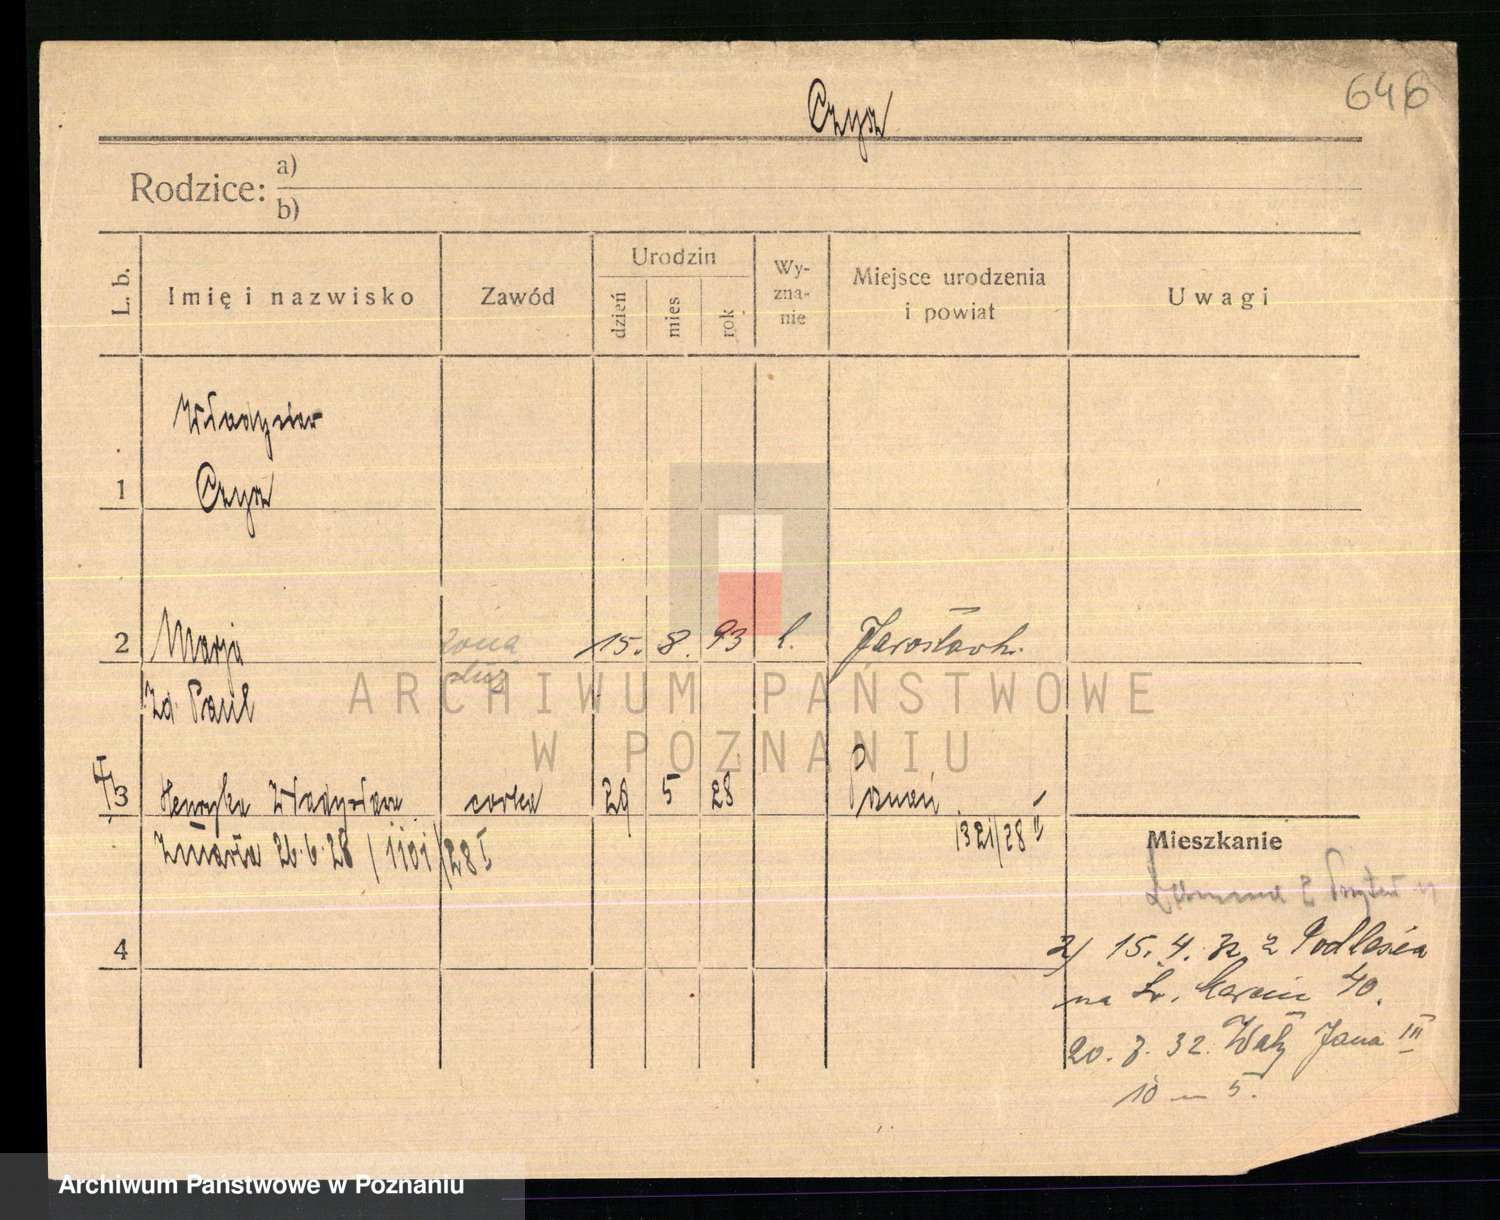 646
Czyż
Rodzice: a)
b)
L. b.
Imię i nazwisko
Zawód
Urodzin
dzień
mies
rok
Wy-
zna-
nie
Miejsce urodzenia
i powiat
Uwagi
Władysław
1 Czyż
2 Marja żona 15. 8. 93 k. Jarosławk.
zd. Paul służ
3 Henryka Władysława córka 29 5 28 Poznań
1321/28 II
zmarła 26.6.28 / 1101/28 I
Mieszkanie
4
2) 15. 4. 32 z Podlesia
na Św. Marcin 40.
20. 7. 32. Wały Jana III
10 m 5.
ARCHIWUM PAŃSTWOWE
W POZNANIU
Archiwum Państwowe w Poznaniu